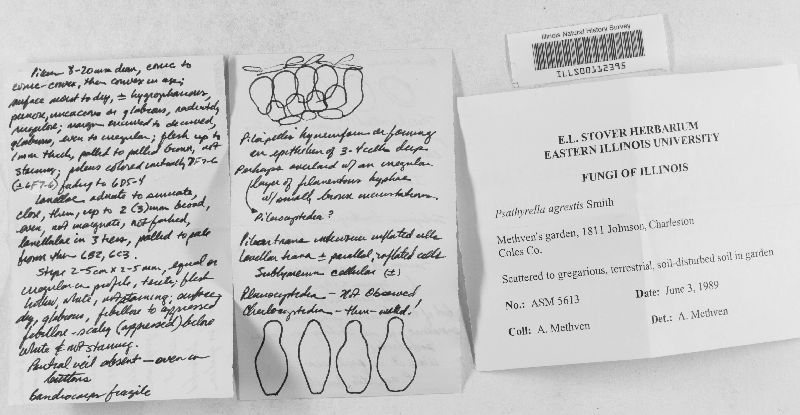 Pileus 8-20 mm diam, conic to
conic-convex, then convex in age;
surface moist to dry, ± hygrophanous,
glabrous, radially
rugulose; margin incurved to decurved,
glabrous, even to irregular; flesh up to
1mm thick, pallid to pallid brown, not
staining; pileus colored
fading to 6D5-4
Lamellae adnate to sinuate,
close, thin, up to 2 (3) mm broad,
even, not marginate, not forked,
lamellulae in 3 tiers, pallid to pale
brown then 6E2, 6E3.
Stipe 2-5 cm x 2-5 mm, equal or
irregular in profile, terete; flesh
hollow, white, not staining; surface
dry, glabrous, fibrillose to appressed
fibrillose-scaly (appressed) below
white & not staining.
Partial veil absent — even in
buttons
basidiocarps fragile
Pileipellis hymeniform or forming
an epithelium of 3-4 cells deep
Perhaps overlaid w/ an irregular
layer of filamentous hyphae
w/ small, brown incrustations.
Pileocystidia?
Pileus trama interwoven inflated cells
Lamellar trama ± parallel, inflated cells
Subhymenium cellular (±)
Pleurocystidia — not observed
Cheilocystidia — thin-walled!
Illinois Natural History Survey
ILLS00112395
E.L. STOVER HERBARIUM
EASTERN ILLINOIS UNIVERSITY
FUNGI OF ILLINOIS
Psathyrella agrestis Smith
Methven's garden, 1811 Johnson, Charleston
Coles Co.
Scattered to gregarious, terrestrial, soil-disturbed soil in garden
No.: ASM 5613 Date: June 3, 1989
Coll: A. Methven Det.: A. Methven